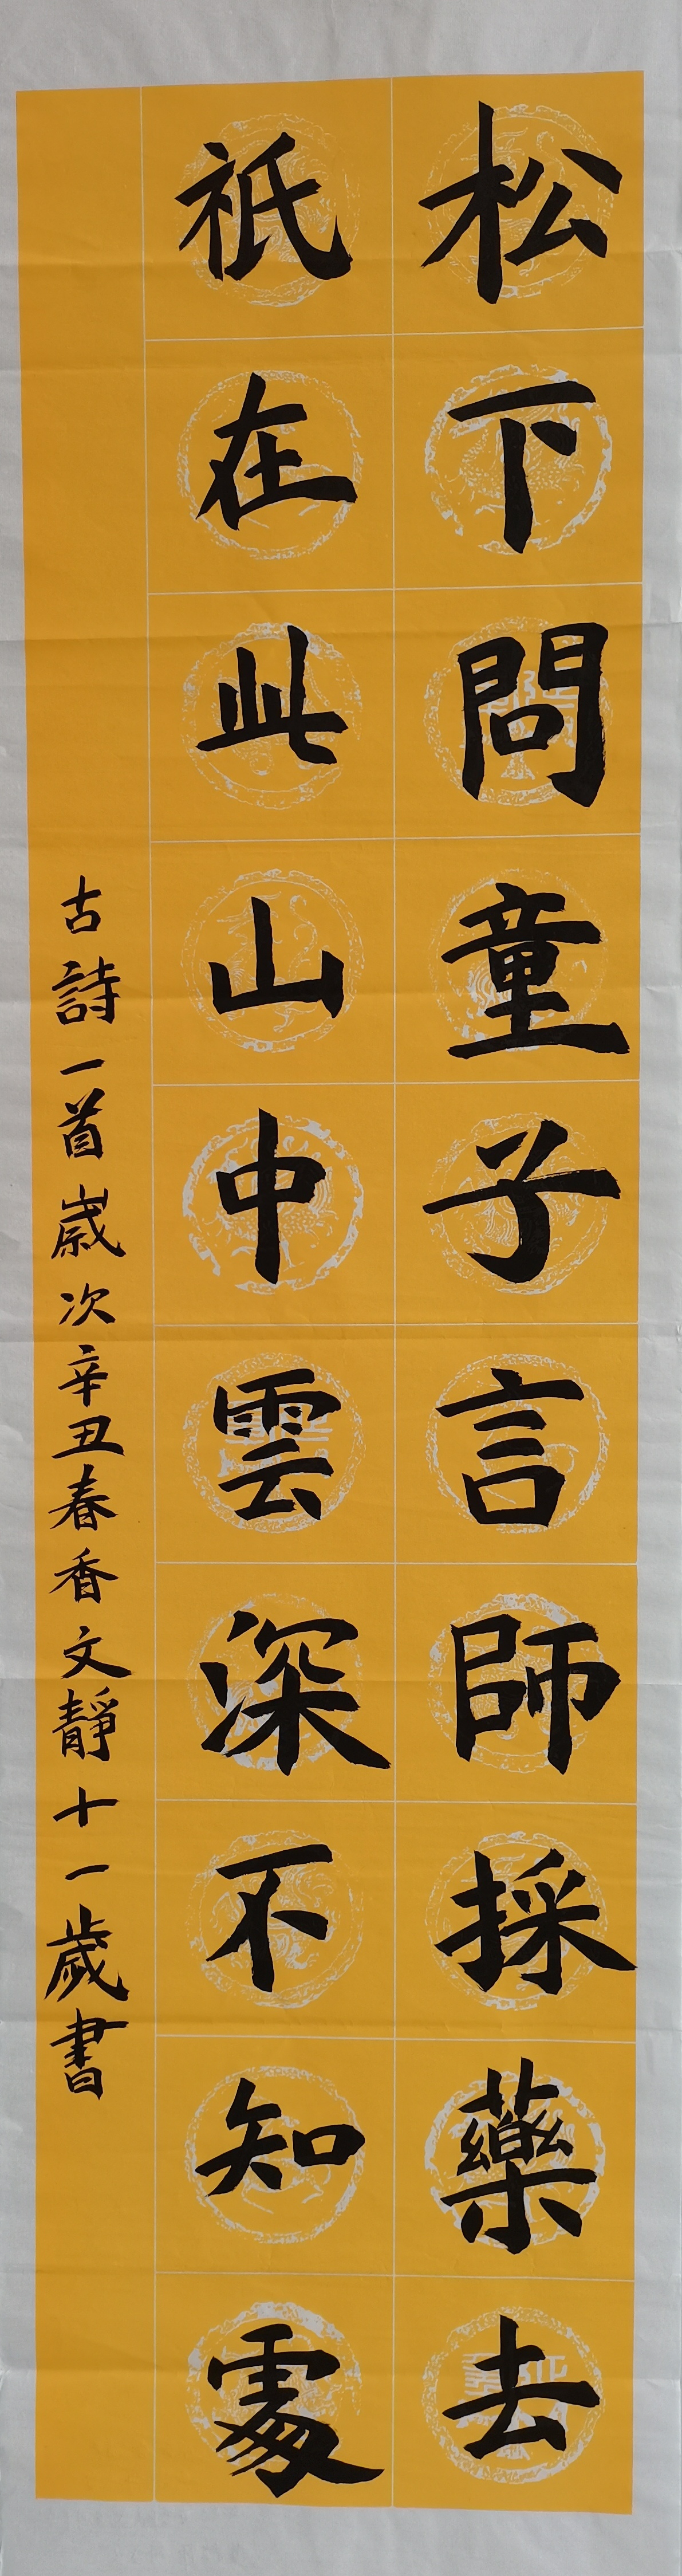 松下問童子言師採藥去
祇在此山中雲深不知處
古詩一首歲次辛丑春香文靜十一歲書